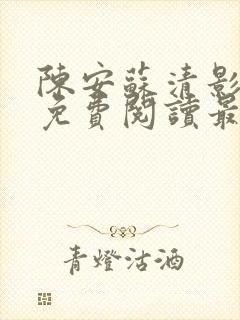 陳安蘇清影
免費閱讀最
青燈沽酒